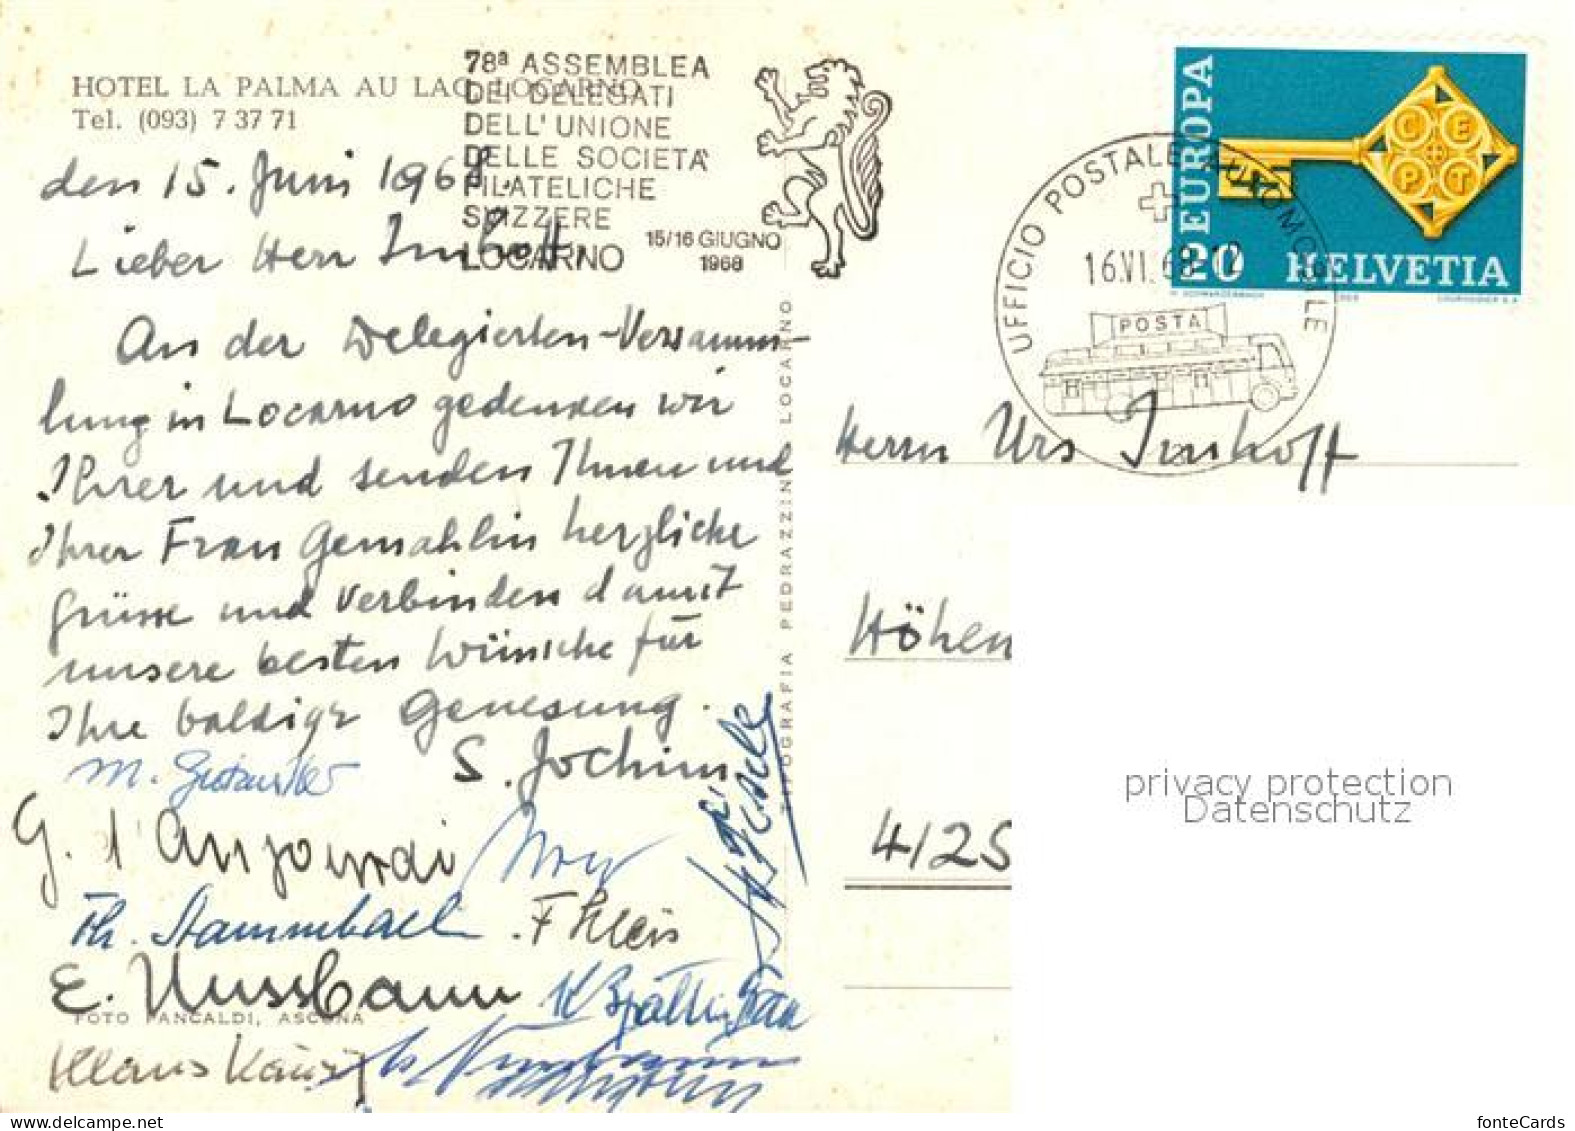 HOTEL LA PALMA AU LAC, LOCARNO
Tel. (093) 7 37 71
78ª ASSEMBLEA
DEI DELEGATI
DELL'UNIONE
DELLE SOCIETÀ
FILATELICHE
SVIZZERE
LOCARNO
15/16 GIUGNO
1968
EUROPA
CEPT
20 HELVETIA
UFFICIO POSTALE AUTOMOBILE
16.VI.68-12
POSTA
den 15. Juni 1968.
Lieber Herr Imhoff,
An der Delegierten-Versamm-
lung in Locarno gedenken wir
Ihrer und senden Ihnen und
Ihrer Frau Gemahlin herzliche
Grüsse und verbinden damit
unsere besten Wünsche für
Ihre baldige Genesung.
S. Jochim
Th. Stammbach
E. Nussbaum
Klaus
FOTO PANCALDI, ASCONA
TIPOGRAFIA PEDRAZZINI LOCARNO
Herrn Urs Imhoff
Höhen
4125
privacy protection
Datenschutz
fonteCards